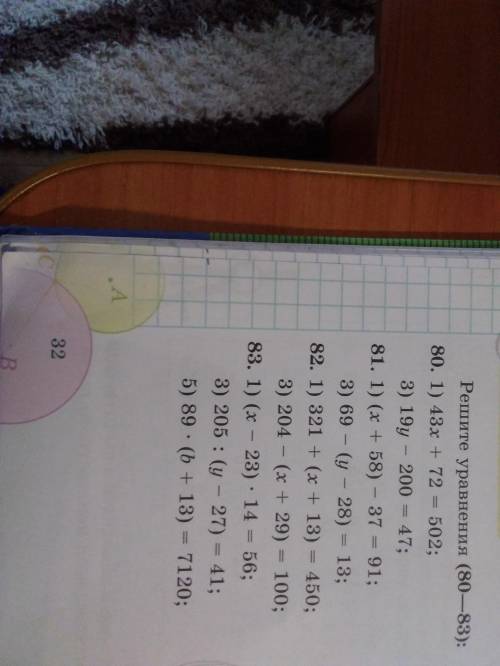 Решите уравнения (80—83):
80. 1) 43x + 72 = 502;
3) 19y − 200 = 47;
81. 1) (x + 58) − 37 = 91;
3) 69 − (y − 28) = 13;
82. 1) 321 + (x + 13) = 450;
3) 204 − (x + 29) = 100;
83. 1) (x − 23) · 14 = 56;
3) 205 : (y − 27) = 41;
5) 89 · (b + 13) = 7120;
A
C
B
32